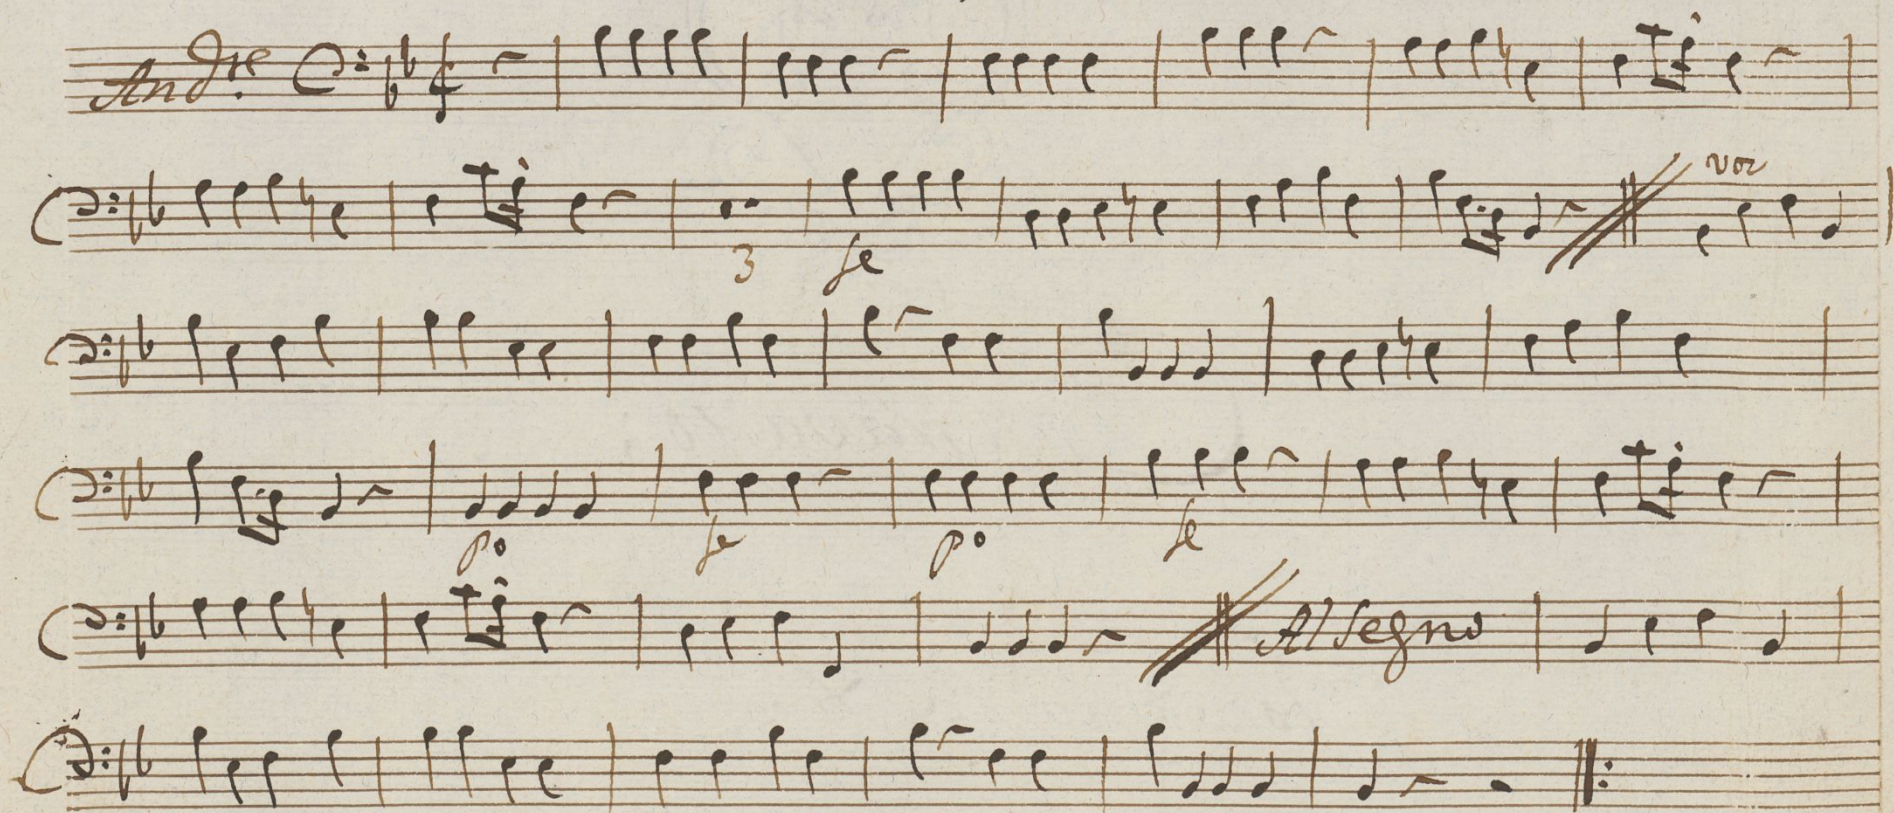 Andre
vor
3 fe
po fe po fe
Al Segno